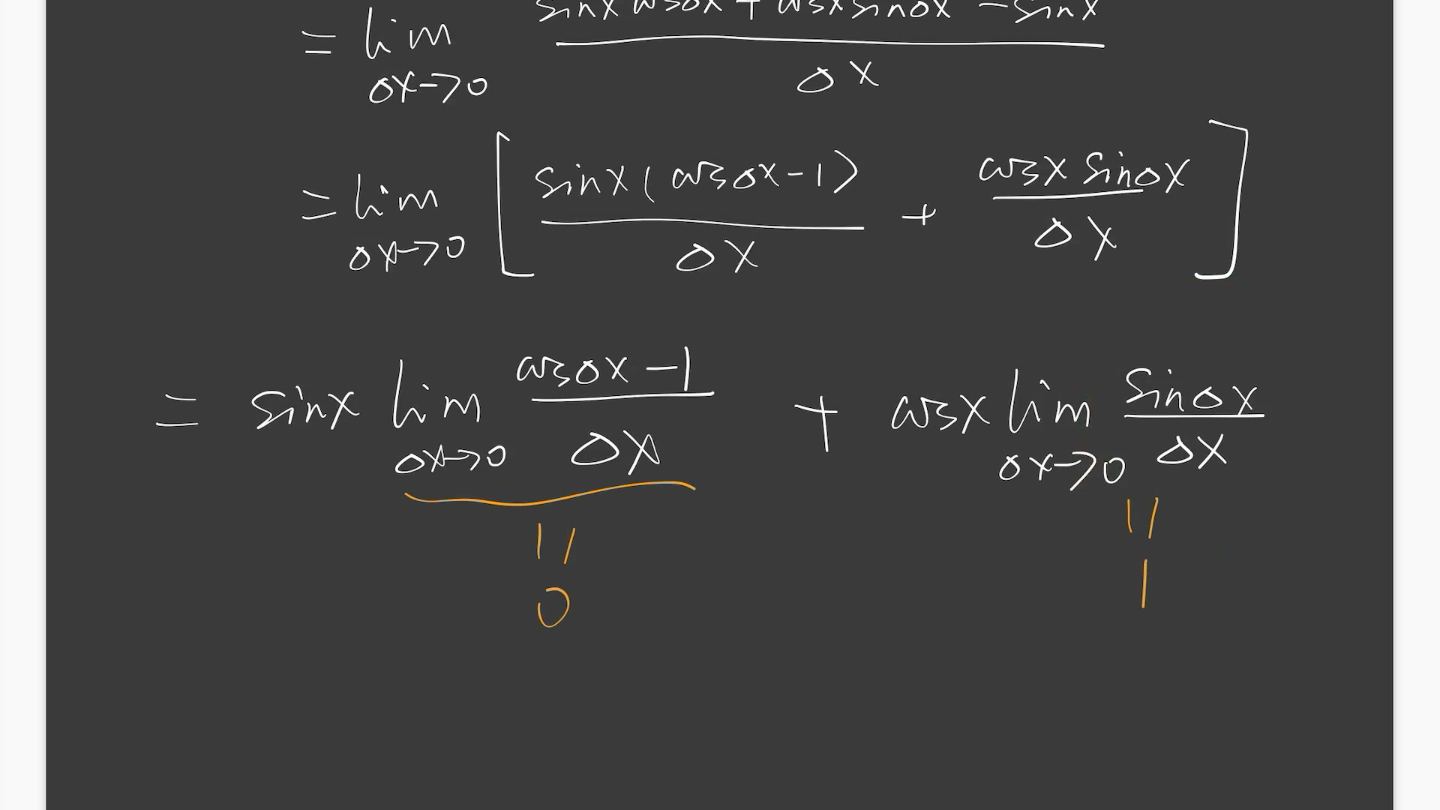 = lim_{Δx→0} \frac{sinx cosΔx + cosx sinΔx - sinx}{Δx}
= lim_{Δx→0} [ \frac{sinx(cosΔx-1)}{Δx} + \frac{cosx sinΔx}{Δx} ]
= sinx lim_{Δx→0} \frac{cosΔx-1}{Δx} + cosx lim_{Δx→0} \frac{sinΔx}{Δx}
= 0 = 1